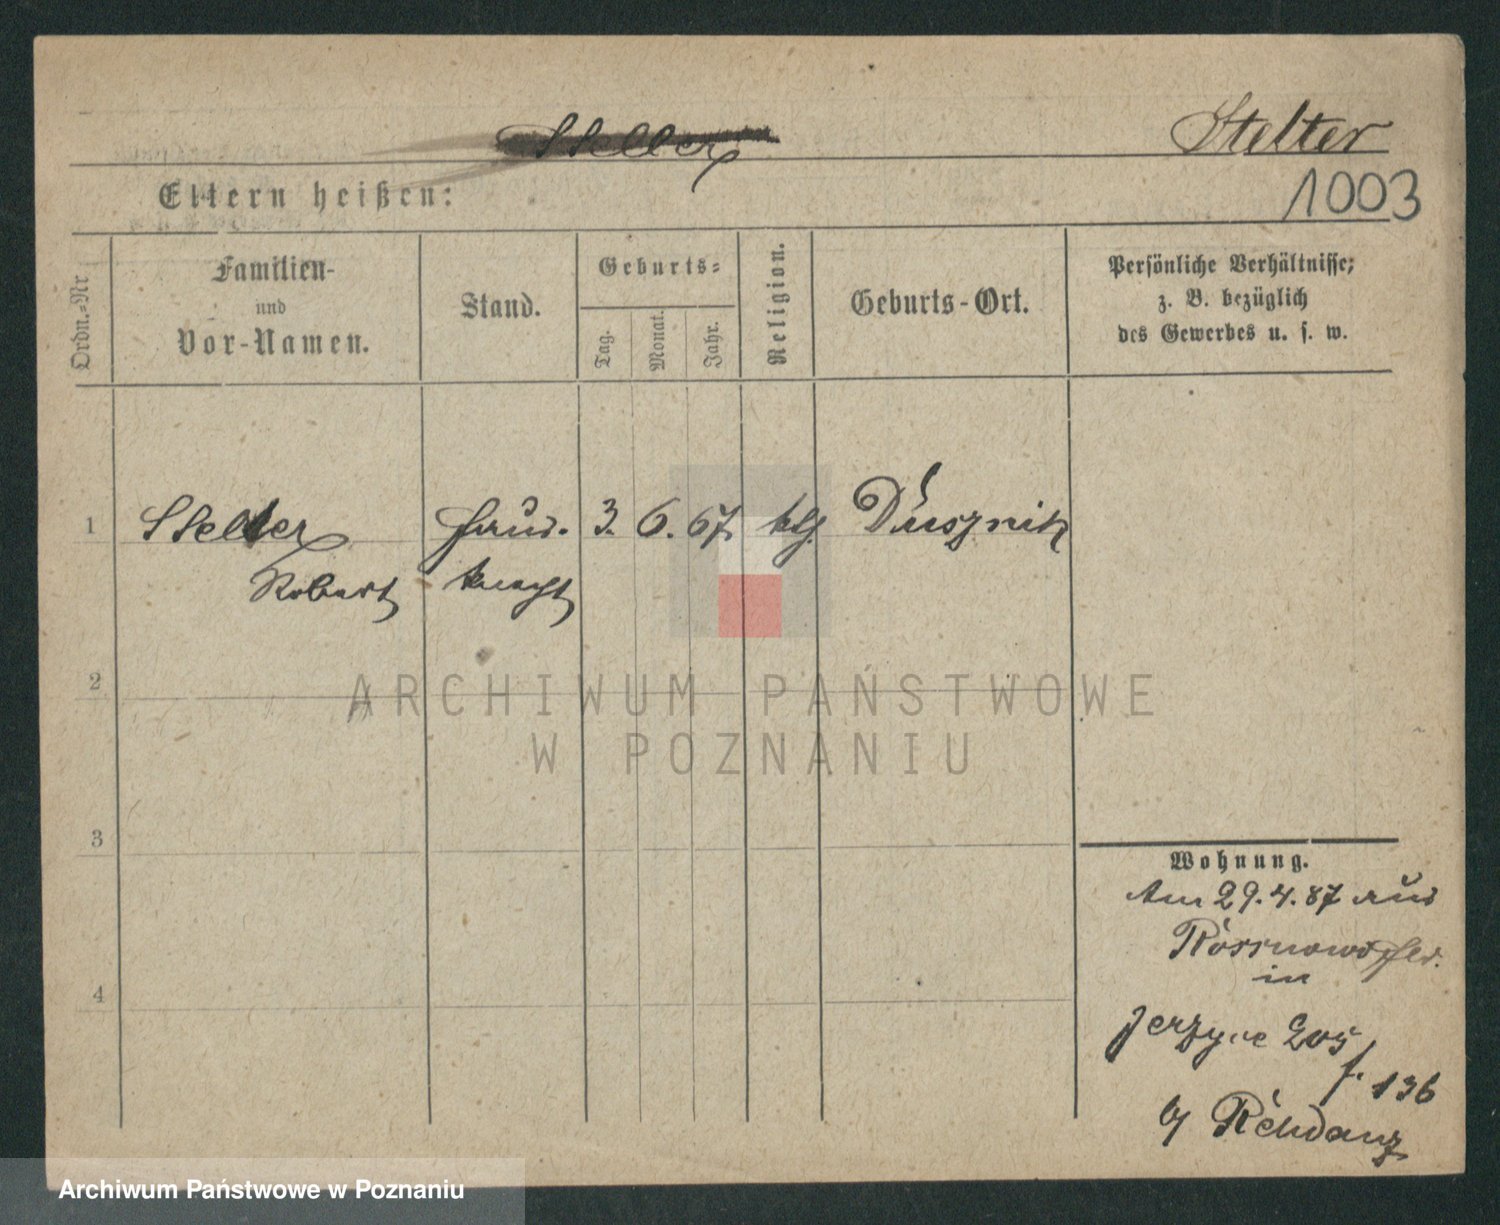 Steller Stelter
Eltern heißen: 1003
Ordn.-Nr
Familien-
und
Vor-Namen.
Stand.
Geburts-
Tag.
Monat.
Jahr.
Religion.
Geburts-Ort.
Persönliche Verhältnisse;
z. B. bezüglich
des Gewerbes u. s. w.
1 Stelter Haus- 3. 6. 67. kth. Dusznik
Robert knecht
2
3
4
Wohnung.
Am 29.4.87 aus
in
Jerzyce
f. 136
b/ Rehdanz
ARCHIWUM PAŃSTWOWE
W POZNANIU
Archiwum Państwowe w Poznaniu